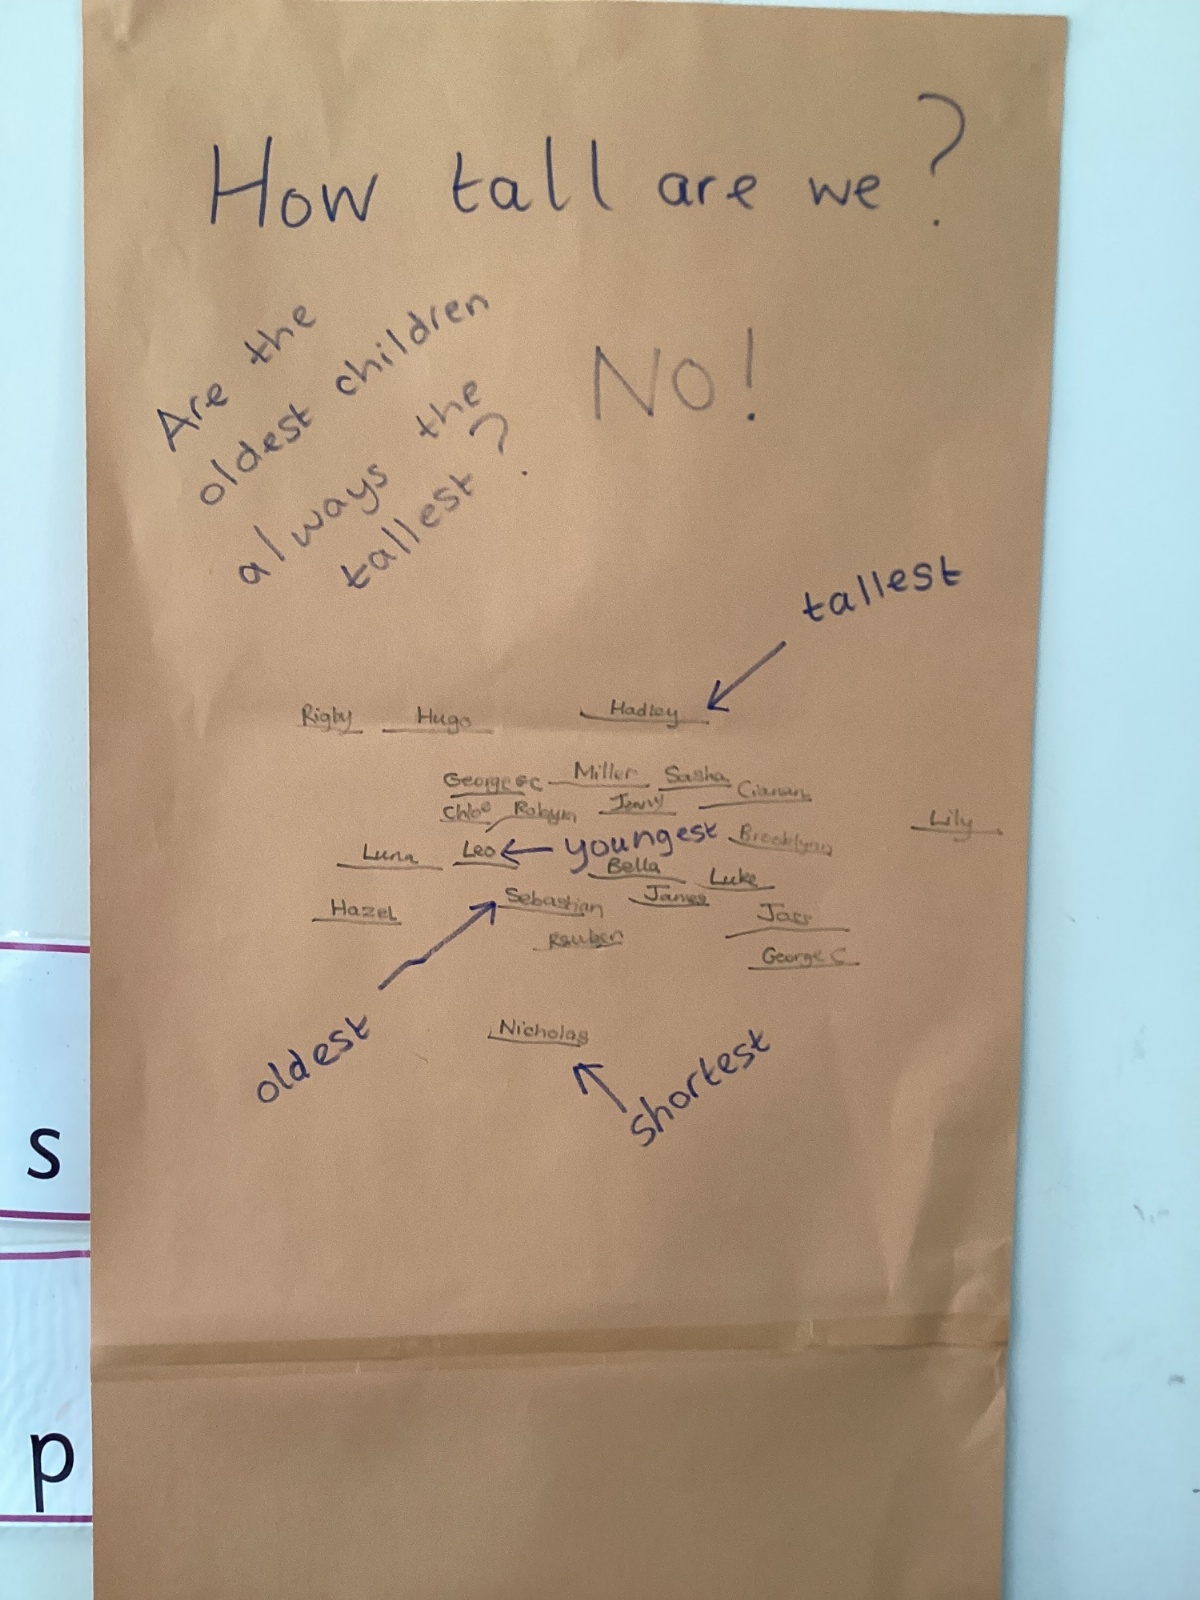 How tall are we?
Are the
oldest children
always the
tallest?
No!
tallest
Rigby Hugo Hadley
George Miller Sasha
Chloe Robyn Cianan
Lily
Luna Leo youngest Brooklynn
Bella Luke
Hazel Sebastian James
Reuben
George C
oldest
Nicholas
shortest
s
p